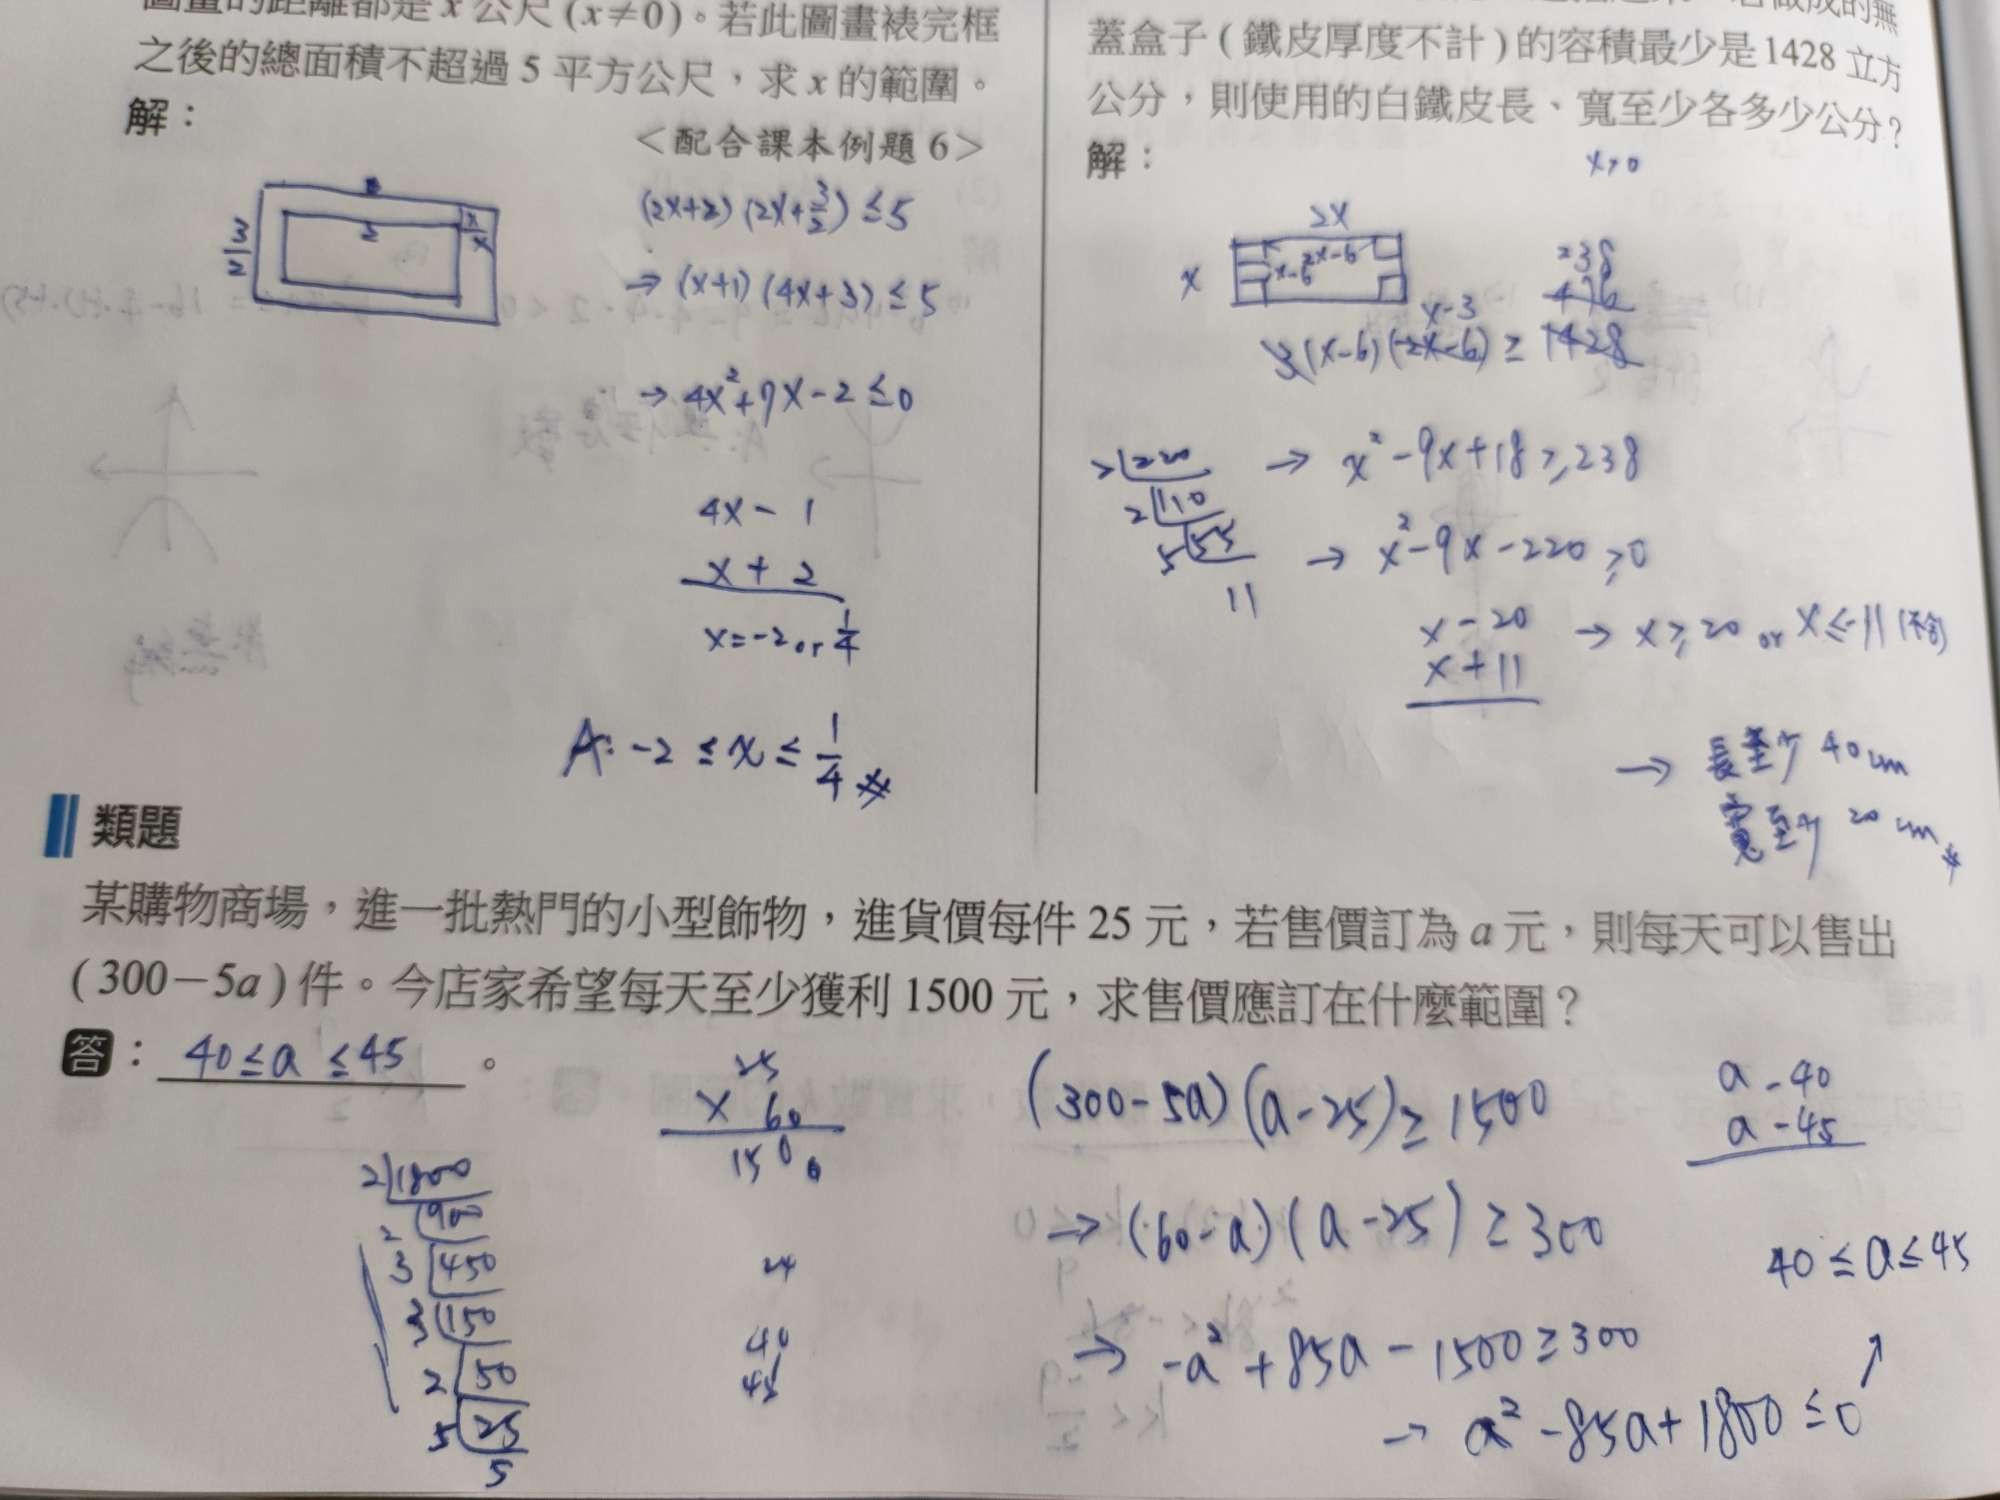 圖畫的距離都是 x 公尺 (x≠0)。若此圖畫裱完框
之後的總面積不超過 5 平方公尺，求 x 的範圍。
解：
＜配合課本例題 6＞
3/2
2
x
x
(2x+2)(2x+3/2)≤5
→ (x+1)(4x+3)≤5
→ 4x²+7x-2≤0
4x - 1
x + 2
x=-2 or 1/4
A: -2 ≤ x ≤ 1/4 #
蓋盒子 ( 鐵皮厚度不計 ) 的容積最少是 1428 立方
公分，則使用的白鐵皮長、寬至少各多少公分？
解：
x>0
2x
x
2x-6
x-6
238
476
x-3
3(x-6)(2x-6) ≥ 1428
→ x²-9x+18≥238
2 220
2 110
5 55
11
→ x²-9x-220≥0
x-20
x+11
→ x≥20 or x≤-11 (不合)
→ 長至少 40cm
寬至少 20cm #
類題
某購物商場，進一批熱門的小型飾物，進貨價每件 25 元，若售價訂為 a 元，則每天可以售出
( 300－5a ) 件。今店家希望每天至少獲利 1500 元，求售價應訂在什麼範圍？
答：40≤a≤45。
25
x 60
1500
2 1800
2 900
3 450
3 150
2 50
5 25
5
24
40
45
(300-5a)(a-25)≥1500
→ (60-a)(a-25)≥300
→ -a²+85a-1500≥300
→ a²-85a+1800≤0
a-40
a-45
40≤a≤45